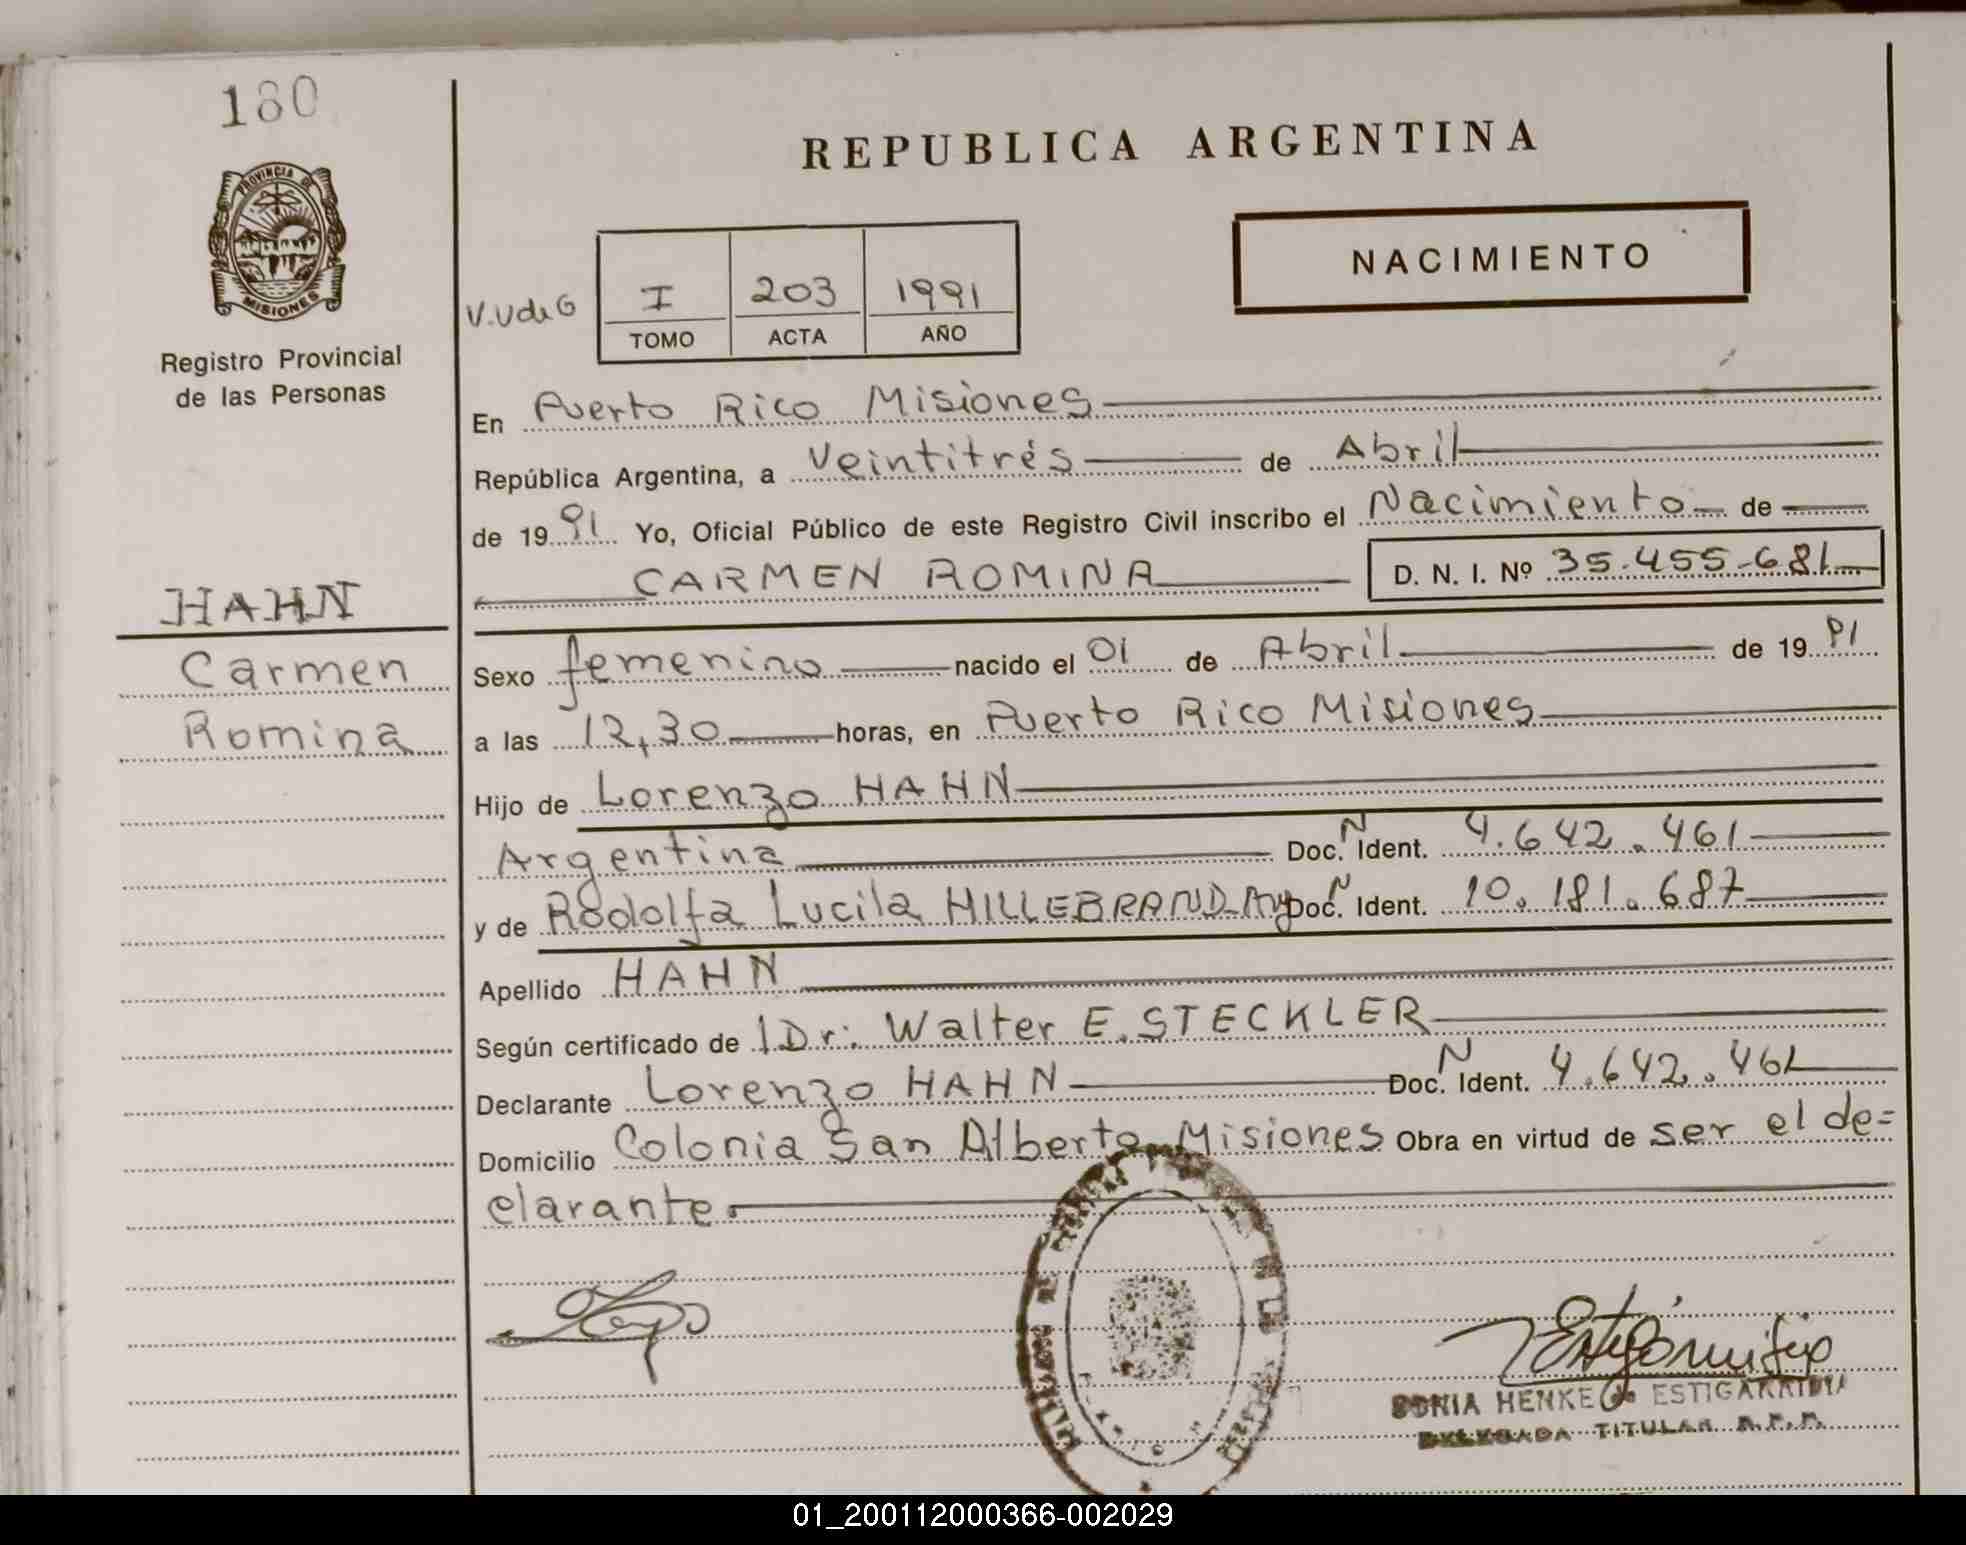 180
REPUBLICA ARGENTINA
PROVINCIA DE
MISIONES
Registro Provincial
de las Personas
V.V de G
I 203 1991
TOMO ACTA AÑO
NACIMIENTO
En Puerto Rico Misiones
República Argentina, a Veintitrés de Abril
de 1991 Yo, Oficial Público de este Registro Civil inscribo el Nacimiento de
CARMEN ROMINA D. N. I. Nº 35.455.681
HAHN
Carmen
Romina
Sexo femenino nacido el 01 de Abril de 1991
a las 12,30 horas, en Puerto Rico Misiones
Hijo de Lorenzo HAHN
Argentina Doc. N Ident. 4.642.461
y de Rodolfa Lucila HILLEBRAND Arg Doc. N Ident. 10.181.687
Apellido HAHN
Según certificado de Dr. Walter E. STECKLER
Declarante Lorenzo HAHN Doc. N Ident. 4.642.461
Domicilio Colonia San Alberto Misiones Obra en virtud de ser el de=
clarante.
SONIA HENKE de ESTIGARRIBIA
DELEGADA TITULAR R.P.P.
01_200112000366-002029